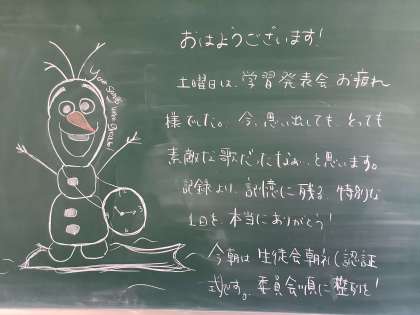 Your songs were Great
おはようございます!
土曜日は、学習発表会お疲れ
様でした。今、思い出しても、とっても
素敵な歌だったなぁ。と思います。
記録より、記憶に残る、特別な
1日を、本当にありがとう!
今朝は生徒会朝礼(認証
式)です。委員会順に整列を!